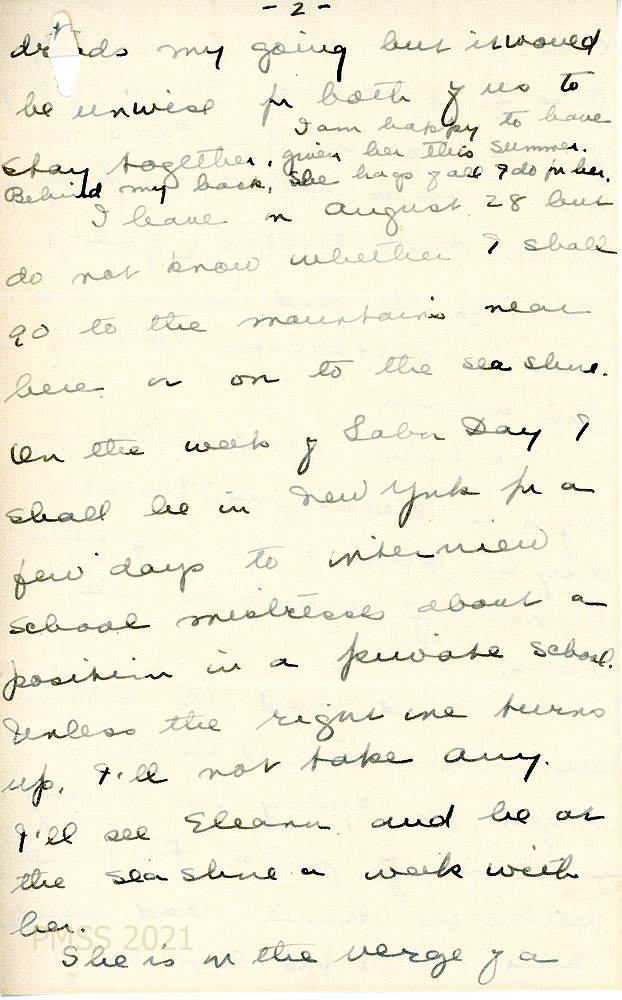 - 2 -
dreads my going but it would
be unwise for both of us to
stay together. I am happy to have
given her this summer.
Behind my back, she brags of all I do for her.
I leave on August 28 but
do not know whether I shall
go to the mountains near
here or on to the sea shore.
On the week of Labor Day I
shall be in New York for a
few days to interview
school mistresses about a
position in a private school.
Unless the right one turns
up, I'll not take any.
I'll see Eleanor and be at
the sea shore a week with
her.
PMSS 2021
She is on the verge of a